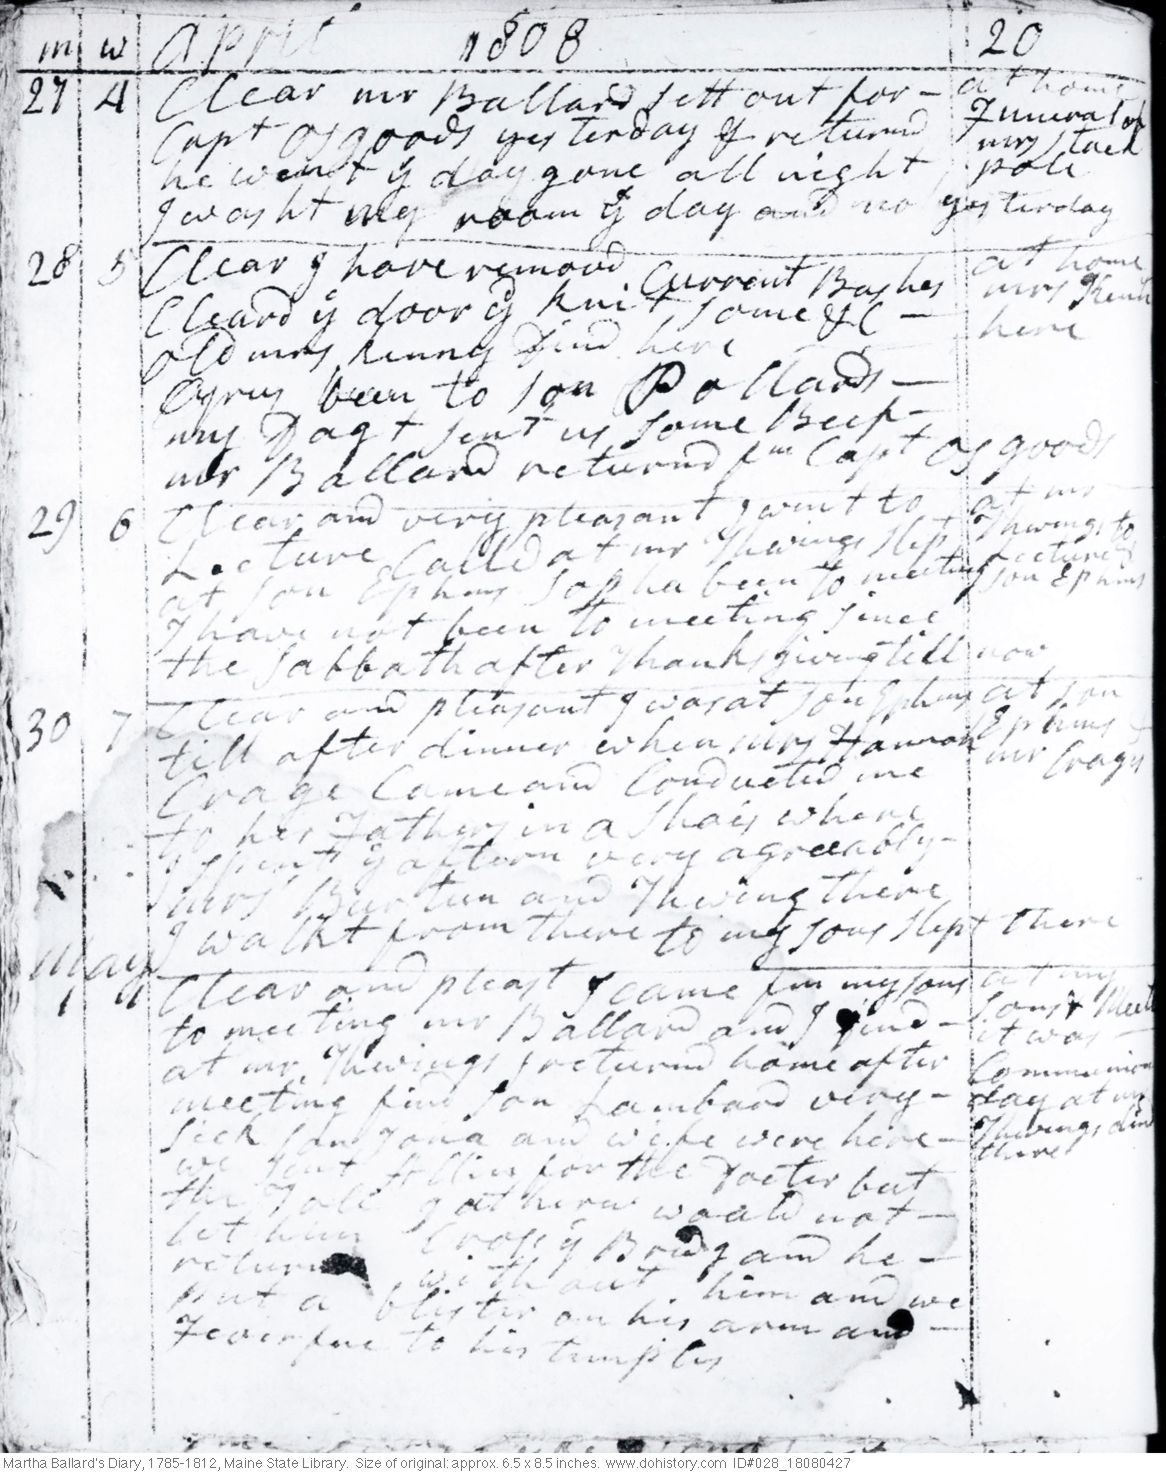 m w April 1808 20
27 4 Clear mr Ballard sett out for - at home
Capt Osgoods yesterday & returnd Funeral of
he went ÿ day gone all night mrs Stack
I washt my room ÿ day and no yesterday pole
28 5 Clear I have removd Current Bushes at home
Cleard ÿ door ÿd knit some &C - mrs
old mrs Kinny Dind here here
Cyrus been to son Pollards -
my Dagt sent us some Beef -
mr Ballard returnd fm Capt Osgoods
29 6 Clear and very pleasant I went to at mr
Lecture Calld at mr Thwings slept Thwings to
at son Ephms Sopha been to meeting Lecture &
I have not been to meeting since son Ephms
the Sabbath after Thanksgiving till now
30 7 Clear and pleasant I was at son Ephms at son
till after dinner when mrs Hannah Ephms
Crage Came and Conducted me mr Crages
to her Fathers in a Shais where
I spent ÿ aftern very agreeably -
mrs Burtun and Thwing there
I walkt from there to my sons slept there
May
1 1 Clear and pleast I came fm my sons at my
to meeting mr Ballard and I Dind - sons & Meet
at mr Thwings I returnd home after it was
meeting find son Lambard very - Communion
sick son Jona and wife were here - day at mr
we sent Allin for the Docter but Thwings dind
the Tole gatherer would not - there
let him Cross ÿ Bridg and he -
return without him and we
put a blister on his arm and -
Feverfue to his temples
Martha Ballard's Diary, 1785-1812, Maine State Library. Size of original: approx. 6.5 x 8.5 inches. www.dohistory.com ID#028_18080427